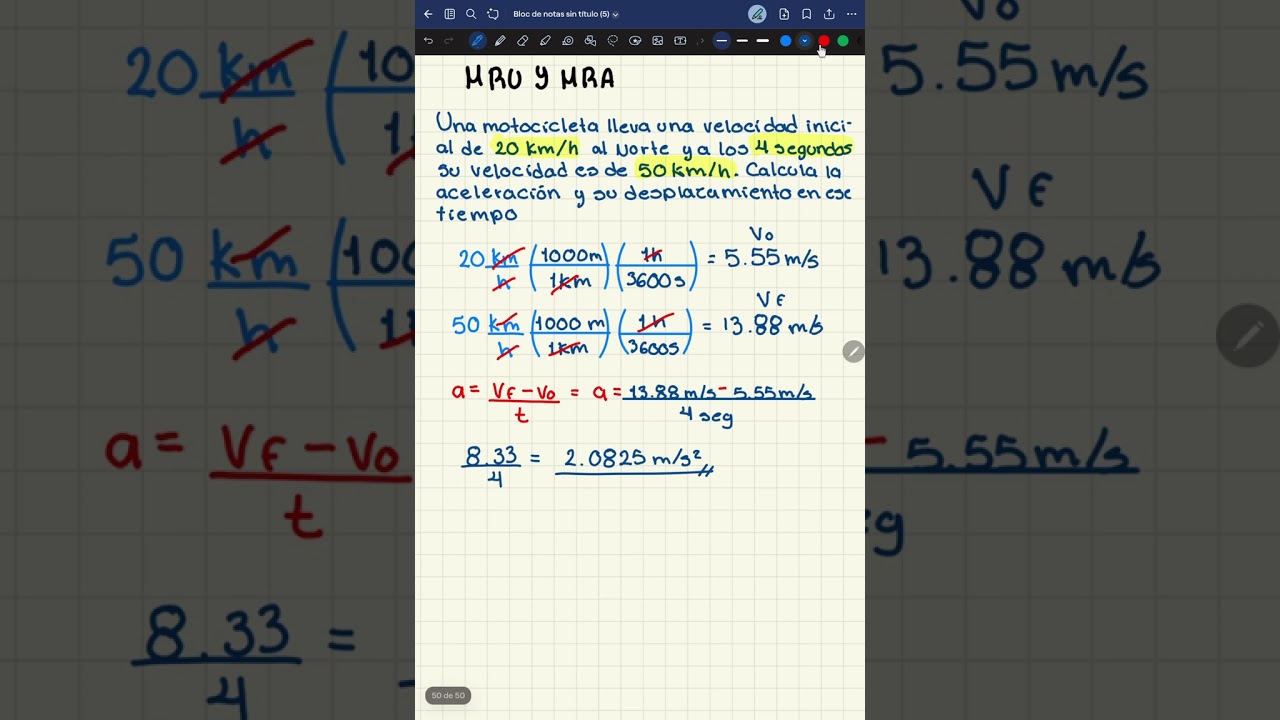 Bloc de notas sin título (5)
MRU Y MRA
Una motocicleta lleva una velocidad inici-
al de 20 km/h al Norte y a los 4 segundos
su velocidad es de 50 km/h. Calcula la
aceleración y su desplazamiento en ese
tiempo
Vo
20 km/h (1000m/1km) (1h/3600s) = 5.55 m/s
VF
50 km/h (1000 m/1km) (1h/3600s) = 13.88 m/s
a = VF - Vo / t = a = 13.88 m/s - 5.55 m/s / 4 seg
8.33/4 = 2.0825 m/s²
50 de 50
20 km/h (10
1
Vo
5.55 m/s
50 km/h (100
VF
13.88 m/s
a = VF - Vo / t
- 5.55 m/s
g
8.33/4 =